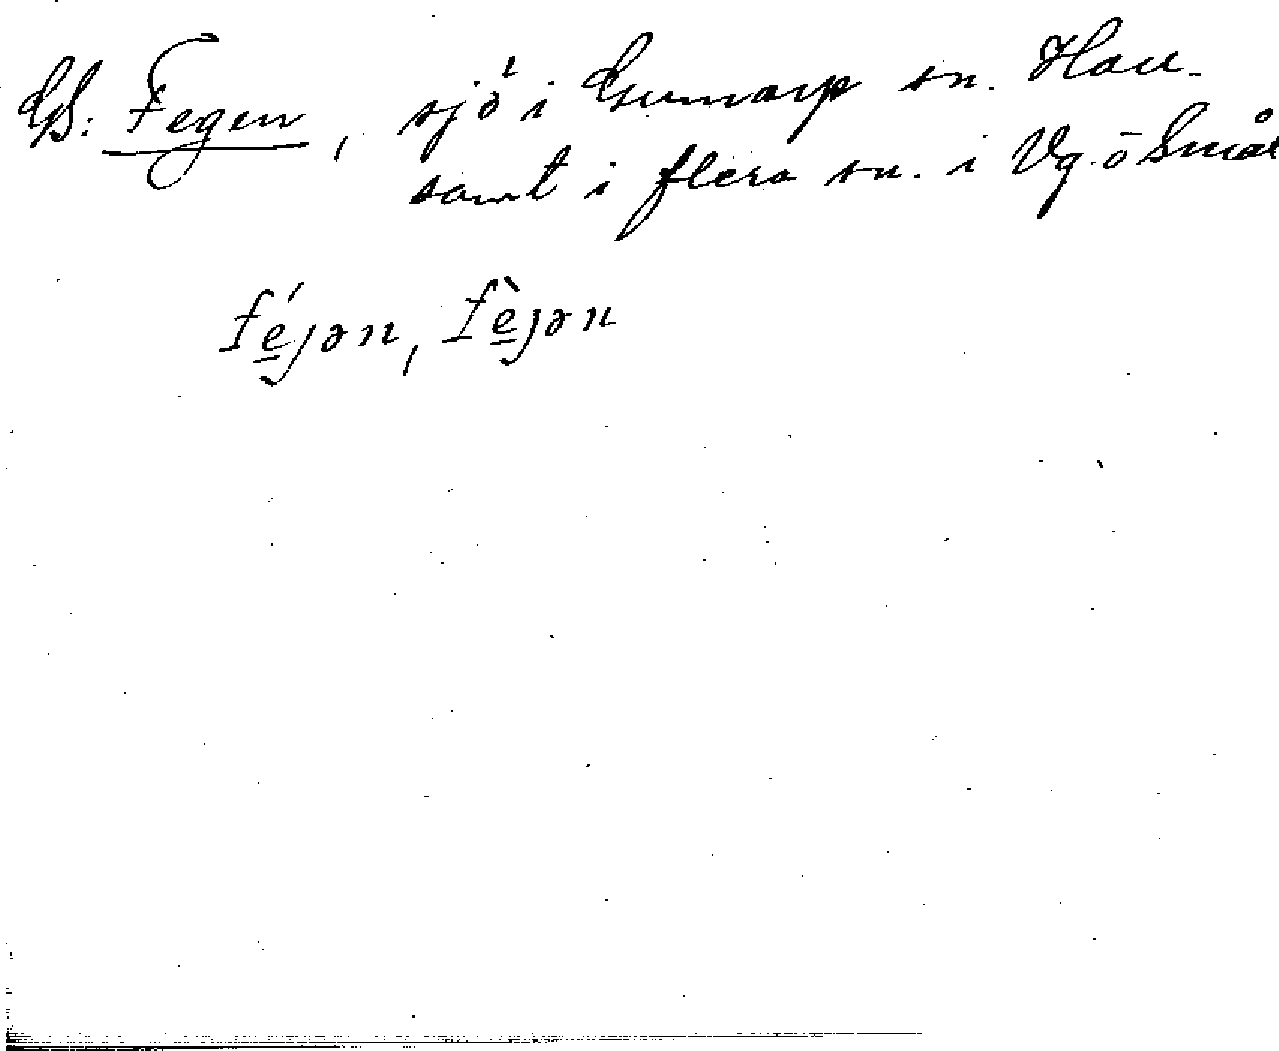 GS: Fegen, sjö i Gunnarp sn. Hall.
samt i flera sn. i Vg. o Smål
fé̲jən, fè̲jən